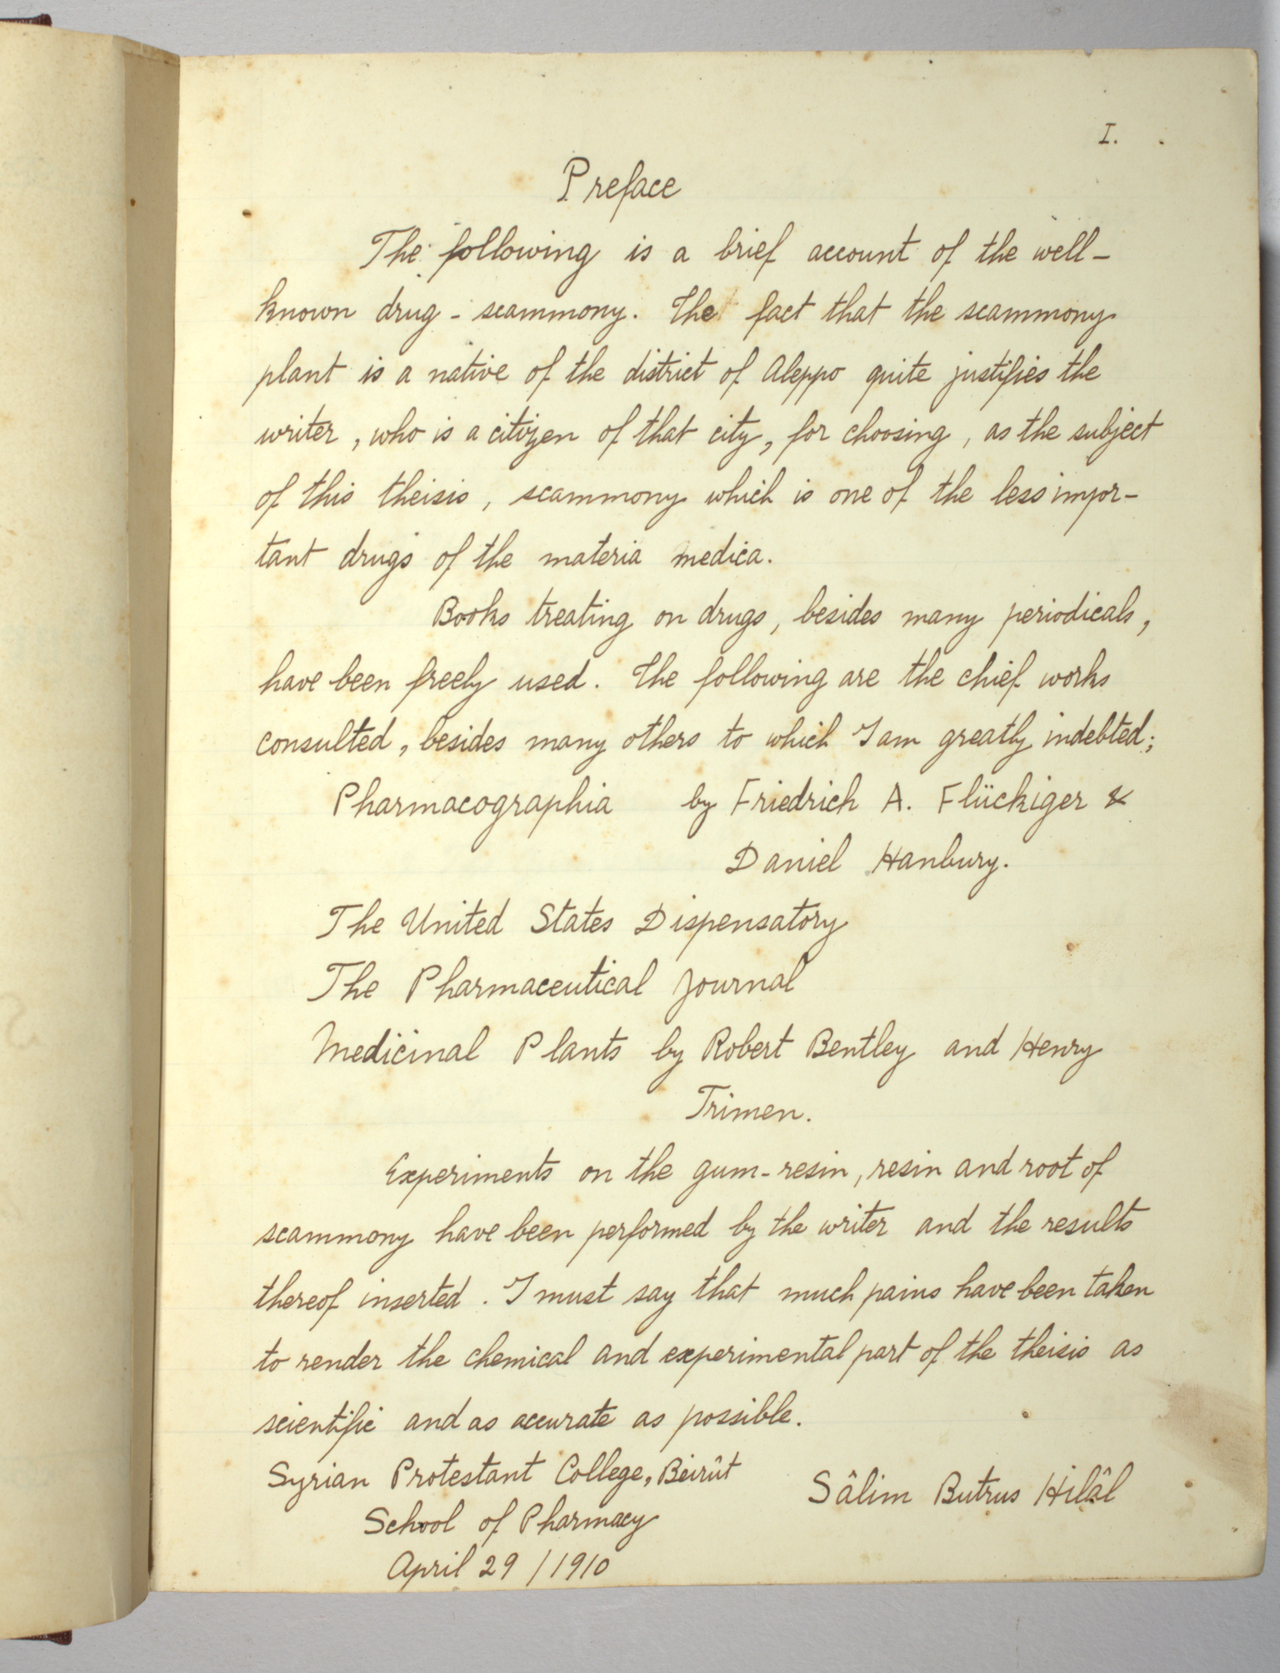 I.
Preface
The following is a brief account of the well-
known drug - scammony. The fact that the scammony
plant is a native of the district of Aleppo quite justifies the
writer, who is a citizen of that city, for choosing, as the subject
of this theisis, scammony which is one of the less impor-
tant drugs of the materia medica.
Books treating on drugs, besides many periodicals,
have been freely used. The following are the chief works
consulted, besides many others to which I am greatly indebted;
Pharmacographia by Friedrich A. Flückiger &
Daniel Hanbury.
The United States Dispensatory
The Pharmaceutical Journal
Medicinal Plants by Robert Bentley and Henry
Trimen.
Experiments on the gum-resin, resin and root of
scammony have been performed by the writer and the results
thereof inserted. I must say that much pains have been taken
to render the chemical and experimental part of the theisis as
scientific and as accurate as possible.
Syrian Protestant College, Beirût
School of Pharmacy
April 29 / 1910
Sâlim Butrus Hilâl